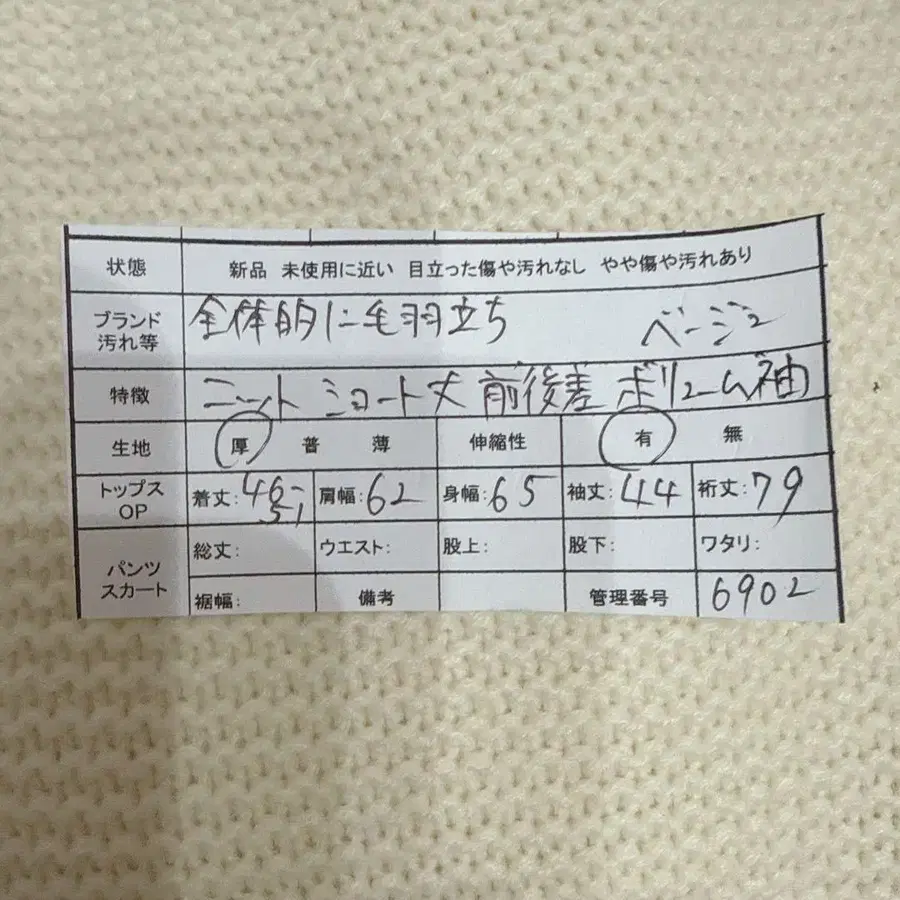 状態 新品 未使用に近い 目立った傷や汚れなし やや傷や汚れあり
ブランド
汚れ等 全体的に毛羽立ち ベージュ
特徴 ニット ショート丈 前後差 ボリューム袖
生地 厚 普 薄 伸縮性 有 無
トップス
OP 着丈:46-51 肩幅:62 身幅:65 袖丈:44 裄丈:79
パンツ
スカート 総丈: ウエスト: 股上: 股下: ワタリ:
裾幅: 備考 管理番号 6902